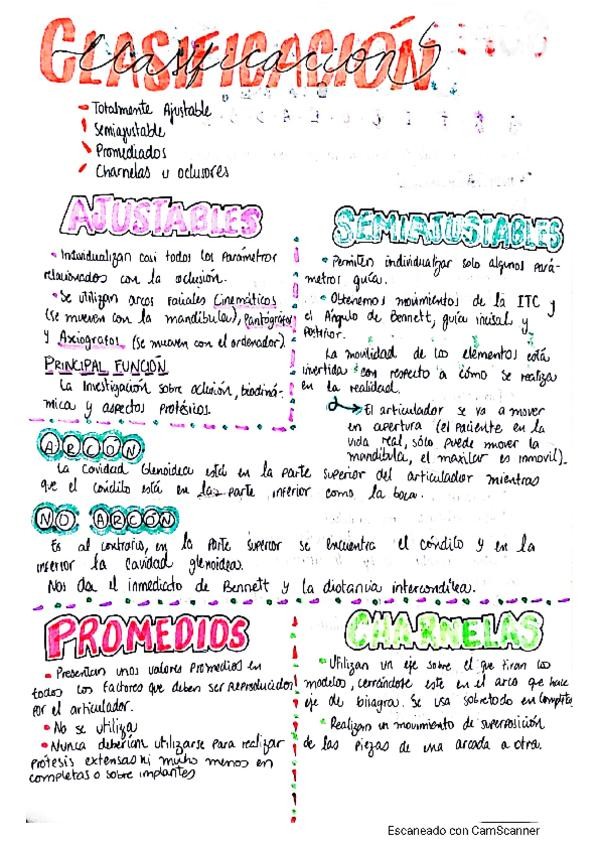 CLASIFICACIÓN
clasificacion
Totalmente Ajustable
Semiajustable
Promediados
Charnelas u oclusores
AJUSTABLES
• Individualizan casi todos los parámetros
relacionados con la oclusión.
• Se utilizan arcos faciales Cinemáticos
(se mueven con la mandíbula), Pantógrafos
y Axiografos (se mueven con el ordenador).
PRINCIPAL FUNCIÓN
La Investigación sobre oclusión, biodiná-
mica y aspectos protésicos
SEMIAJUSTABLES
• Permiten individualizar solo algunos pará-
metros guía.
• Obtenemos movimientos de la ITC y
el Ángulo de Bennett, guía incisal y
posterior.
La movilidad de los elementos está
invertida con respecto a cómo se realiza
en la realidad.
El articulador se va a mover
en apertura (el paciente en la
vida real, sólo puede mover la
mandíbula, el maxilar es inmovil).
ARCON
La cavidad Glenoidea está en la parte superior del articulador mientras
que el cóndilo está en la parte inferior como la boca.
NO ARCÓN
Es al contrario, en la parte superior se encuentra el cóndilo y en la
inferior la cavidad glenoidea.
Nos da el inmediato de Bennett y la distancia intercondílea.
PROMEDIOS
• Presentan unos valores promedios en
todos los factores que deben ser reproducidos
por el articulador.
• No se utiliza
• Nunca deberían utilizarse para realizar
prótesis extensas ni mucho menos en
completas o sobre implantes
CHARNELAS
• Utilizan un eje sobre el que tiran los
modelos, cerrándose este en el arco que hace
eje de bisagras. Se usa sobretodo en completas
• Realizan un movimiento de superposición
de las piezas de una arcada a otra.
Escaneado con CamScanner